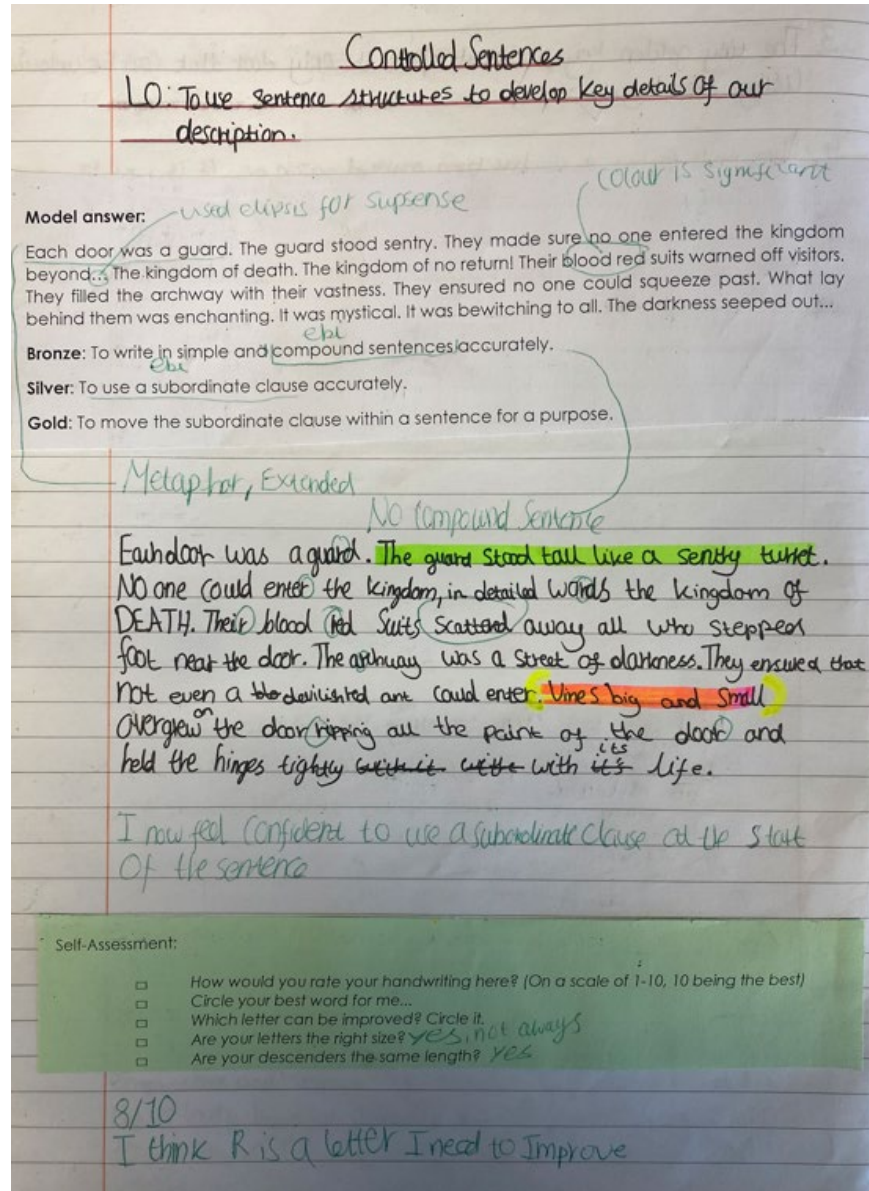 Controlled Sentences
LO: To use sentence structures to develop key details of our
description.
colour is significant
used elipsis for supsense
Model answer:
Each door was a guard. The guard stood sentry. They made sure no one entered the kingdom
beyond... The kingdom of death. The kingdom of no return! Their blood red suits warned off visitors.
They filled the archway with their vastness. They ensured no one could squeeze past. What lay
behind them was enchanting. It was mystical. It was bewitching to all. The darkness seeped out...
ebi
Bronze: To write in simple and compound sentences accurately.
ebi
Silver: To use a subordinate clause accurately.
Gold: To move the subordinate clause within a sentence for a purpose.
Metaphor, Extended
No Compound Sentence
Each door was a guard. The guard stood tall like a sentry turret.
No one could enter the kingdom, in detailed words the kingdom of
DEATH. Their blood red suits scattered away all who stepped
foot near the door. The archway was a street of darkness. They ensured that
not even a devilish red ant could enter. Vines big and small
overgrew on the door ripping all the paint of the door and
held the hinges tightly with its life.
I now feel confident to use a subordinate clause at the start
of the sentence
Self-Assessment:
How would you rate your handwriting here? (On a scale of 1-10, 10 being the best)
Circle your best word for me...
Which letter can be improved? Circle it.
Are your letters the right size? yes, not always
Are your descenders the same length? yes
8/10
I think R is a letter I need to Improve